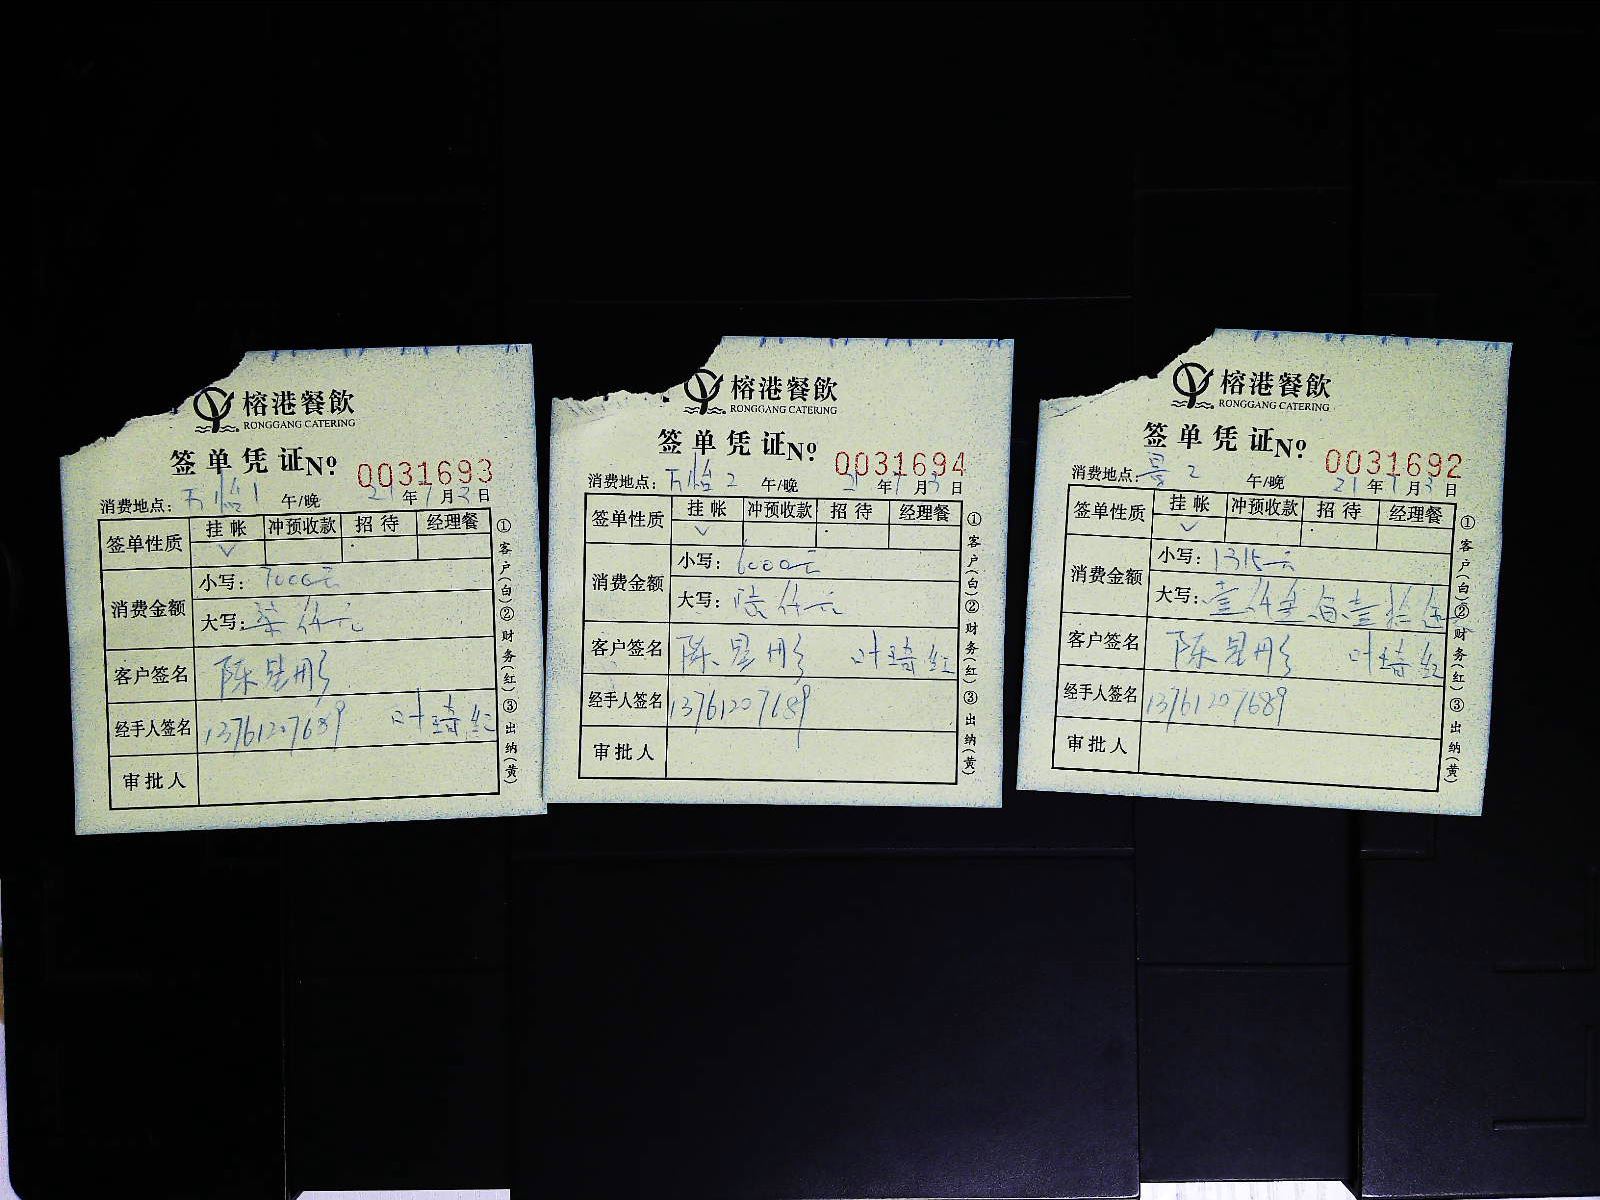 榕港餐飲
RONGGANG CATERING
签单凭证 Nº 0031693
消费地点: 万怡1 午/晚 21年1月3日
签单性质 挂帐 冲预收款 招待 经理餐
√
消费金额 小写: 7000元
大写: 柒仟元
客户签名 陈昱彤
经手人签名 13761207689 叶琦红
审批人
①客户(白)②财务(红)③出纳(黄)
榕港餐飲
RONGGANG CATERING
签单凭证 Nº 0031694
消费地点: 万怡2 午/晚 21年1月3日
签单性质 挂帐 冲预收款 招待 经理餐
√
消费金额 小写: 6000元
大写: 陆仟元
客户签名 陈昱彤 叶琦红
经手人签名 13761207689
审批人
①客户(白)②财务(红)③出纳(黄)
榕港餐飲
RONGGANG CATERING
签单凭证 Nº 0031692
消费地点: 2 午/晚 21年1月3日
签单性质 挂帐 冲预收款 招待 经理餐
√
消费金额 小写: 1315元
大写: 壹仟叁佰壹拾伍
客户签名 陈昱彤 叶琦红
经手人签名 13761207689
审批人
①客户(白)②财务(红)③出纳(黄)